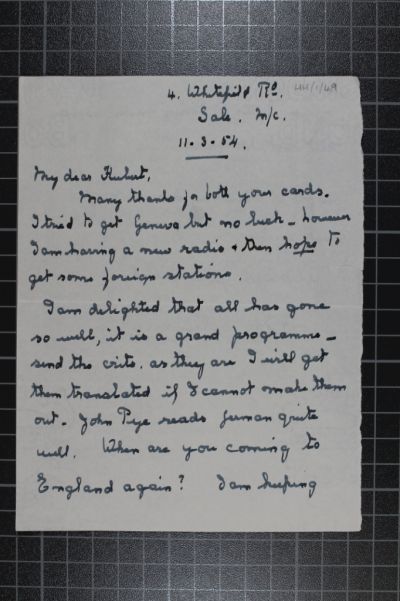 HH/1/49
4. Whitefield Rd.
Sale. M/c.
11.3.54.
My dear Hubert,
Many thanks for both your cards.
I tried to get Geneva but no luck - however
I am having a new radio & then hope to
get some foreign stations.
I am delighted that all has gone
so well, it is a grand programme -
send the crits. as they are I will get
them translated if I cannot make them
out - John Pye reads German quite
well. When are you coming to
England again? I am keeping